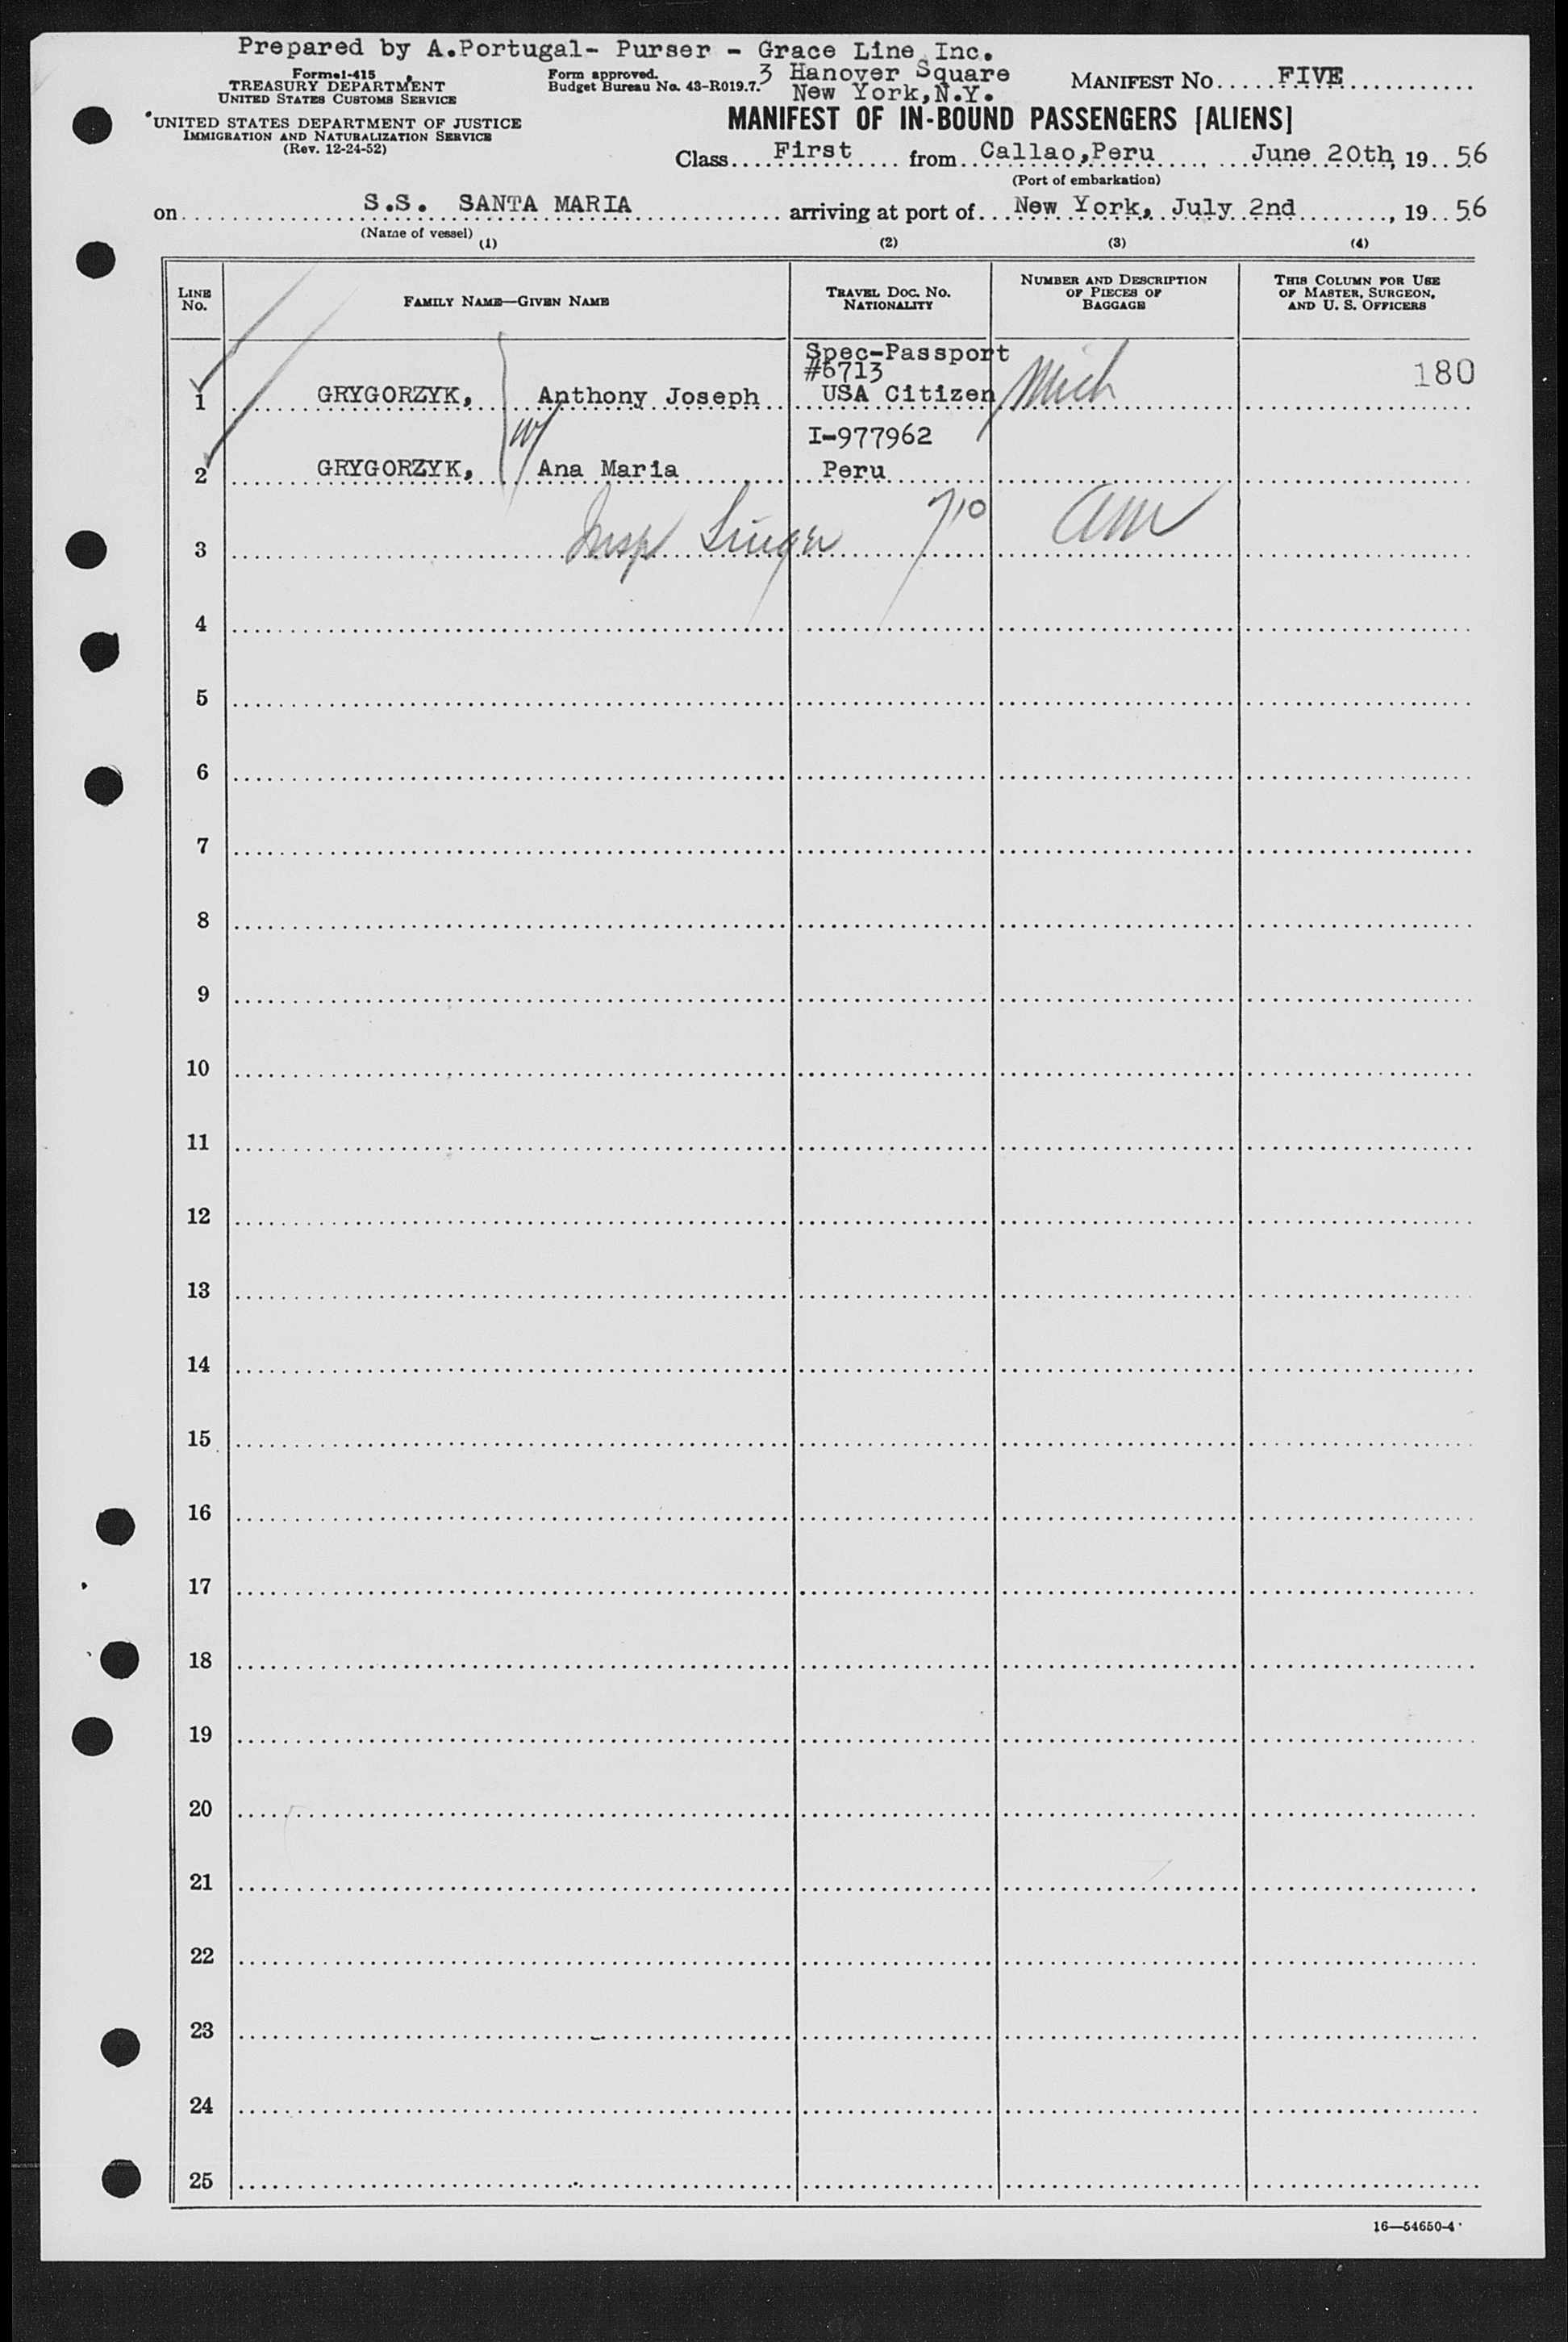 Prepared by A.Portugal- Purser - Grace Line Inc.
3 Hanover Square
New York,N.Y.
Form I-415
TREASURY DEPARTMENT
UNITED STATES CUSTOMS SERVICE
UNITED STATES DEPARTMENT OF JUSTICE
IMMIGRATION AND NATURALIZATION SERVICE
(Rev. 12-24-52)
Form approved.
Budget Bureau No. 43-R019.7.
MANIFEST NO. FIVE
MANIFEST OF IN-BOUND PASSENGERS [ALIENS]
Class First from Callao,Peru June 20th, 19 56
(Port of embarkation)
on S.S. SANTA MARIA arriving at port of New York, July 2nd, 19 56
(Name of vessel)
(1) (2) (3) (4)
LINE NO. FAMILY NAME—GIVEN NAME TRAVEL DOC. NO. NATIONALITY NUMBER AND DESCRIPTION OF PIECES OF BAGGAGE THIS COLUMN FOR USE OF MASTER, SURGEON, AND U. S. OFFICERS
Spec-Passport
#6713 180
1 GRYGORZYK, Anthony Joseph USA Citizen Mich
W
I-977962
2 GRYGORZYK, Ana Maria Peru
3 Insp Singer 710
4
5
6
7
8
9
10
11
12
13
14
15
16
17
18
19
20
21
22
23
24
25
16—54650-4